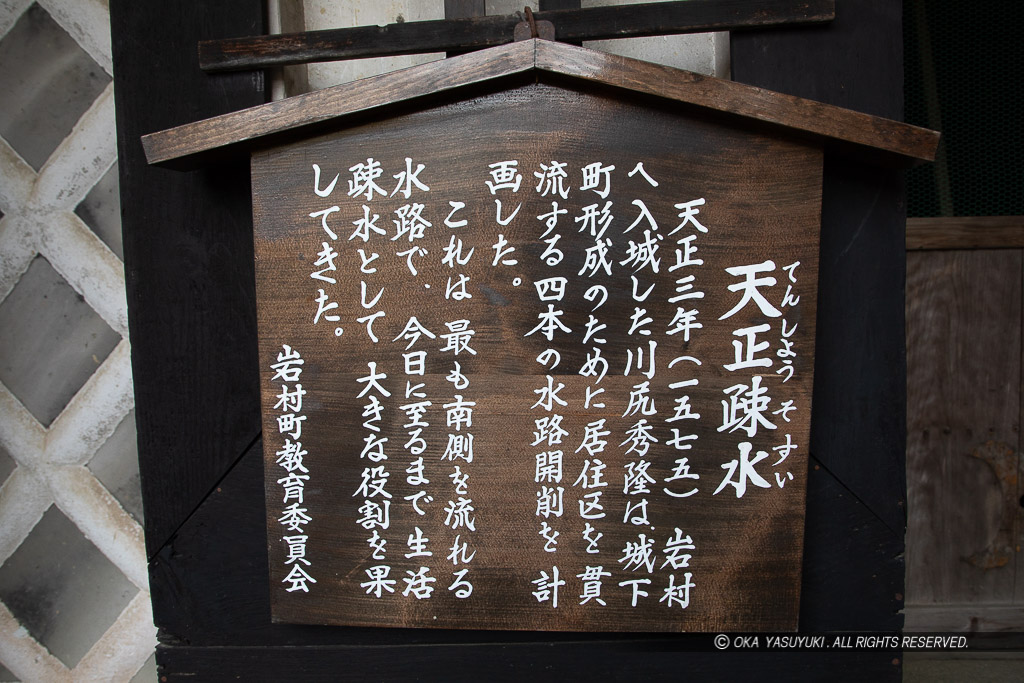 天正疎水
てんしよう そすい
天正三年（一五七五）　岩村
へ入城した川尻秀隆は、城下
町形成のために居住区を貫
流する四本の水路開削を計
画した。
これは 最も南側を流れる
水路で、今日に至るまで生活
疎水として 大きな役割を果
してきた。
岩村町教育委員会
© OKA YASUYUKI . ALL RIGHTS RESERVED.